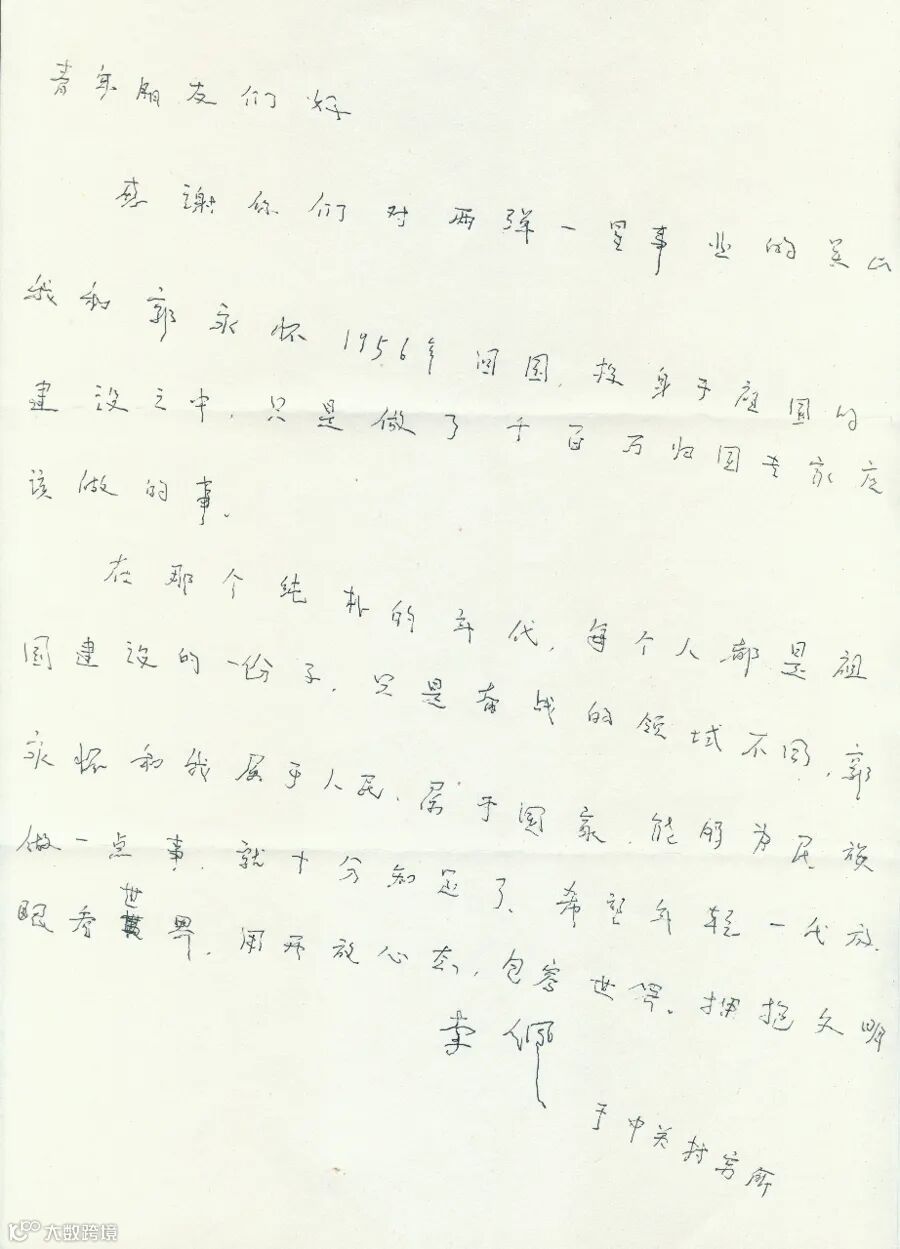 青年朋友们好
感謝你们对两弹一星事业的关心
我和郭永怀1956年回国，投身于祖国的
建设之中，只是做了千百万归国专家应
该做的事。
在那个纯朴的年代，每个人都是祖
国建设的一份子，只是奋战的领域不同，郭
永怀和我属于人民、属于国家，能够为民族
做一点事，就十分知足了、希望年轻一代放
眼看世界，用开放心态，包容世界。拥抱文明
李佩
于中关村寓所
大数跨境